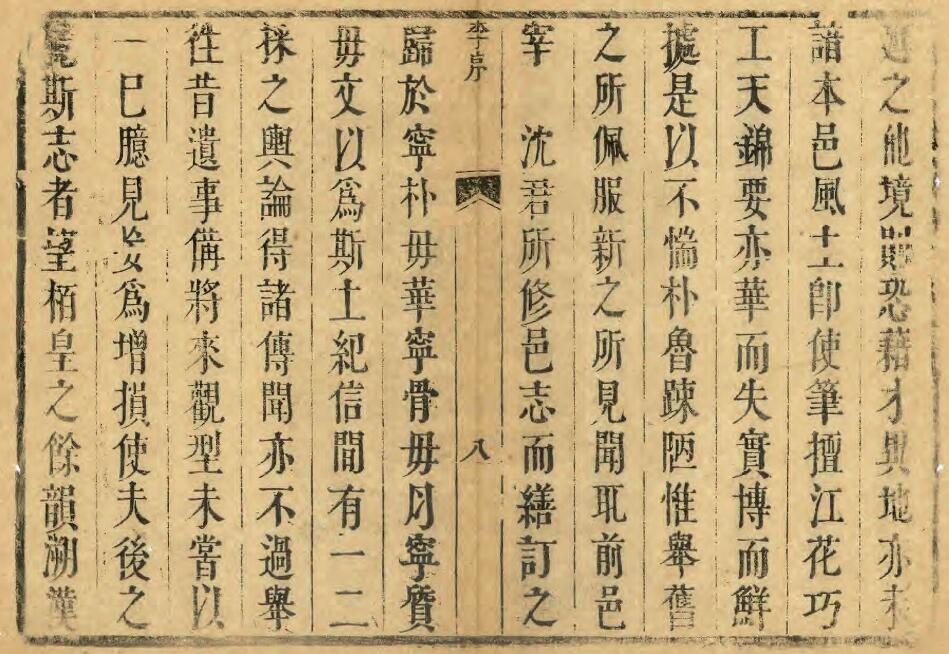 之他境則恐藉才異地亦未
諳本邑風土即使筆擅江花巧
工天錦要亦華而失實博而鮮
據是以不惴朴魯踈陋惟舉舊
之所佩服新之所見聞耴前邑
宰 沈君所修邑志而繕訂之
李序 八
歸於寧朴毋華寧骨毋肉寧質
毋文以爲斯土紀信間有一二
採之輿論得諸傳聞亦不過舉
徃昔遺事備將來觀型未嘗以
一巳臆見妄爲增損使夫後之
覽斯志者望栢皇之餘韻溯漢